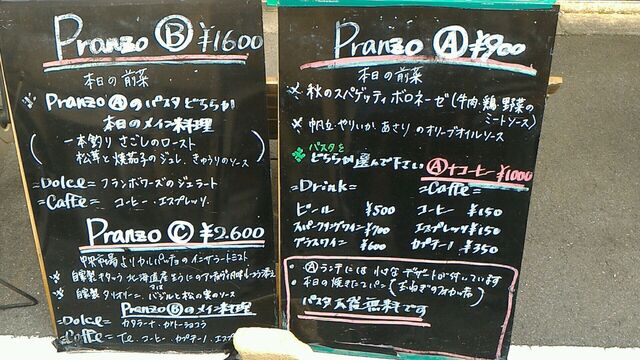 Pranzo Ⓑ ¥1600
本日の前菜
※ Pranzo Ⓐ のパスタどちらか
本日のメイン料理
一本釣り さごしのロースト
松茸と焼茄子のジュレ、きゅうりのソース
=Dolce= フランボワーズのジェラート
=Caffe= コーヒー・エスプレッソ
Pranzo Ⓒ ¥2.600
カルパッチョのインサラータミスト
※ 自家製 北海道産
※ 自家製 タリオリーニ バジルと松の実のソース
Pranzo Ⓑ のメイン料理
=Dolce= カタラーナ・ガトーショコラ
=Caffe= Te. コーヒー カプチーノ. エスプ
Pranzo Ⓐ ¥900
本日の前菜
※ 秋のスパゲッティボロネーゼ(牛肉・鶏・野菜の
ミートソース)
※ 帆立やりいか あさりのオリーブオイルソース
パスタを
※ どちらか選んで下さい Ⓐ+コーヒー ¥1000
=Drink=
ビール ¥500
スパークリングワイン ¥700
グラスワイン ¥600
=Caffe=
コーヒー ¥150
エスプレッソ ¥150
カプチーノ ¥350
・Ⓐランチには 小さなデザートが付いています
・本日の焼きたてパン(玉ねぎのフォカッチャ)
パスタ大盛無料です